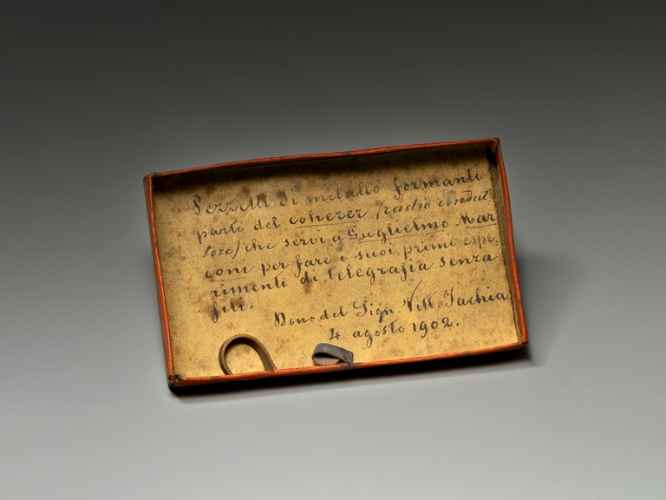 Pezzetti di metallo formanti
parte del coherer (radio condut
tore) che servì a Guglielmo Mar
coni per fare i suoi primi espe
rimenti di telegrafia senza
fili.
Dono del Sign. Vitt.
4 agosto 1902.